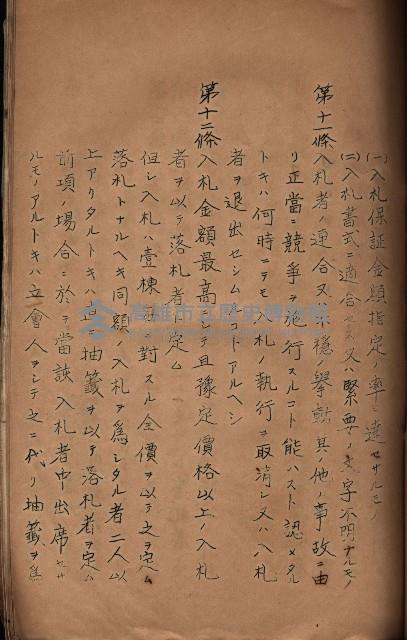 (一)入札保証金額指定ノ率ニ達セサルモノ
(二)入札書式ニ適合セス又ハ緊要ノ文字不明ナルモノ
第十一條 入札者ノ連合又ハ不穏ノ挙動其ノ他ノ事故ニ由
リ正當ニ競爭ヲ施行スルコト能ハスト認メタル
トキハ何時ニテモ入札ノ執行ヲ取消シ又ハ入札
者ヲ退出セシムルコトアルヘシ
第十二條 入札金額最高ニシテ且豫定價格以上ノ入札
者ヲ以テ落札者ト定ム
但シ入札ハ壹棟ニ對スル全價ヲ以テ之ヲ定ム
落札トナルヘキ同額ノ入札ヲ爲シタル者二人以
上アリタルトキハ抽籤ヲ以テ落札者ヲ定ム
前項ノ場合ニ於テ當該入札者中出席セサ
ルモノアルトキハ立會人ヲシテ之ニ代リ抽籤ヲ爲
高雄市立歷史博物館